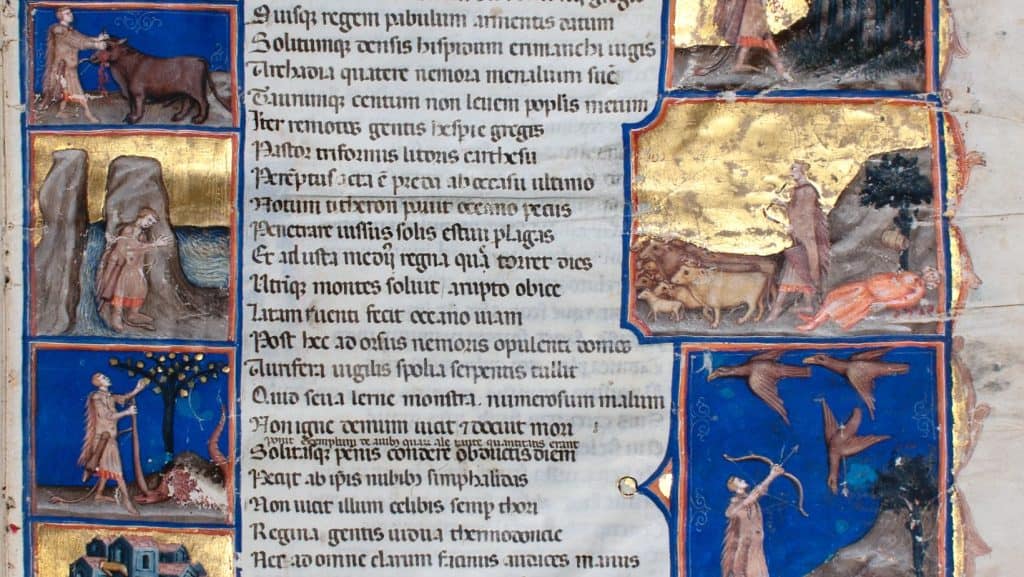 Quisque regem pabulum armentis datum
Solitumque densis hispidum erimanthi iugis
Archadia quatere nemora menalium suē
Taurumque centum non leuem poplis metum
Iter remotos gentis hesperie gregis
Pastor triformis litoris carthesii
Peremptus acta ē preda ab occasu ultimo
Notum citheron pauit oceano pecus
Penetrare iussus solis estiui plagas
Et adusta medius regna que torret dies
Utrique montes soluit arupto obice
Latam ruenti fecit oceano uiam
Post hec adorsus nemoris opulenti domos
Aurifera uigilis spolia serpentis tullit
Quid seua lerne monstra. numerosum malum
Non igne demum uicit et docuit mori
Solitasque penis condere obductis diem
Petiit ab ipsis nubibus stimphalidas
Non uicit illum celibis semper thori
Regina gentis uidua thermodoncie
Nec ad omne clarum facinus audices manus